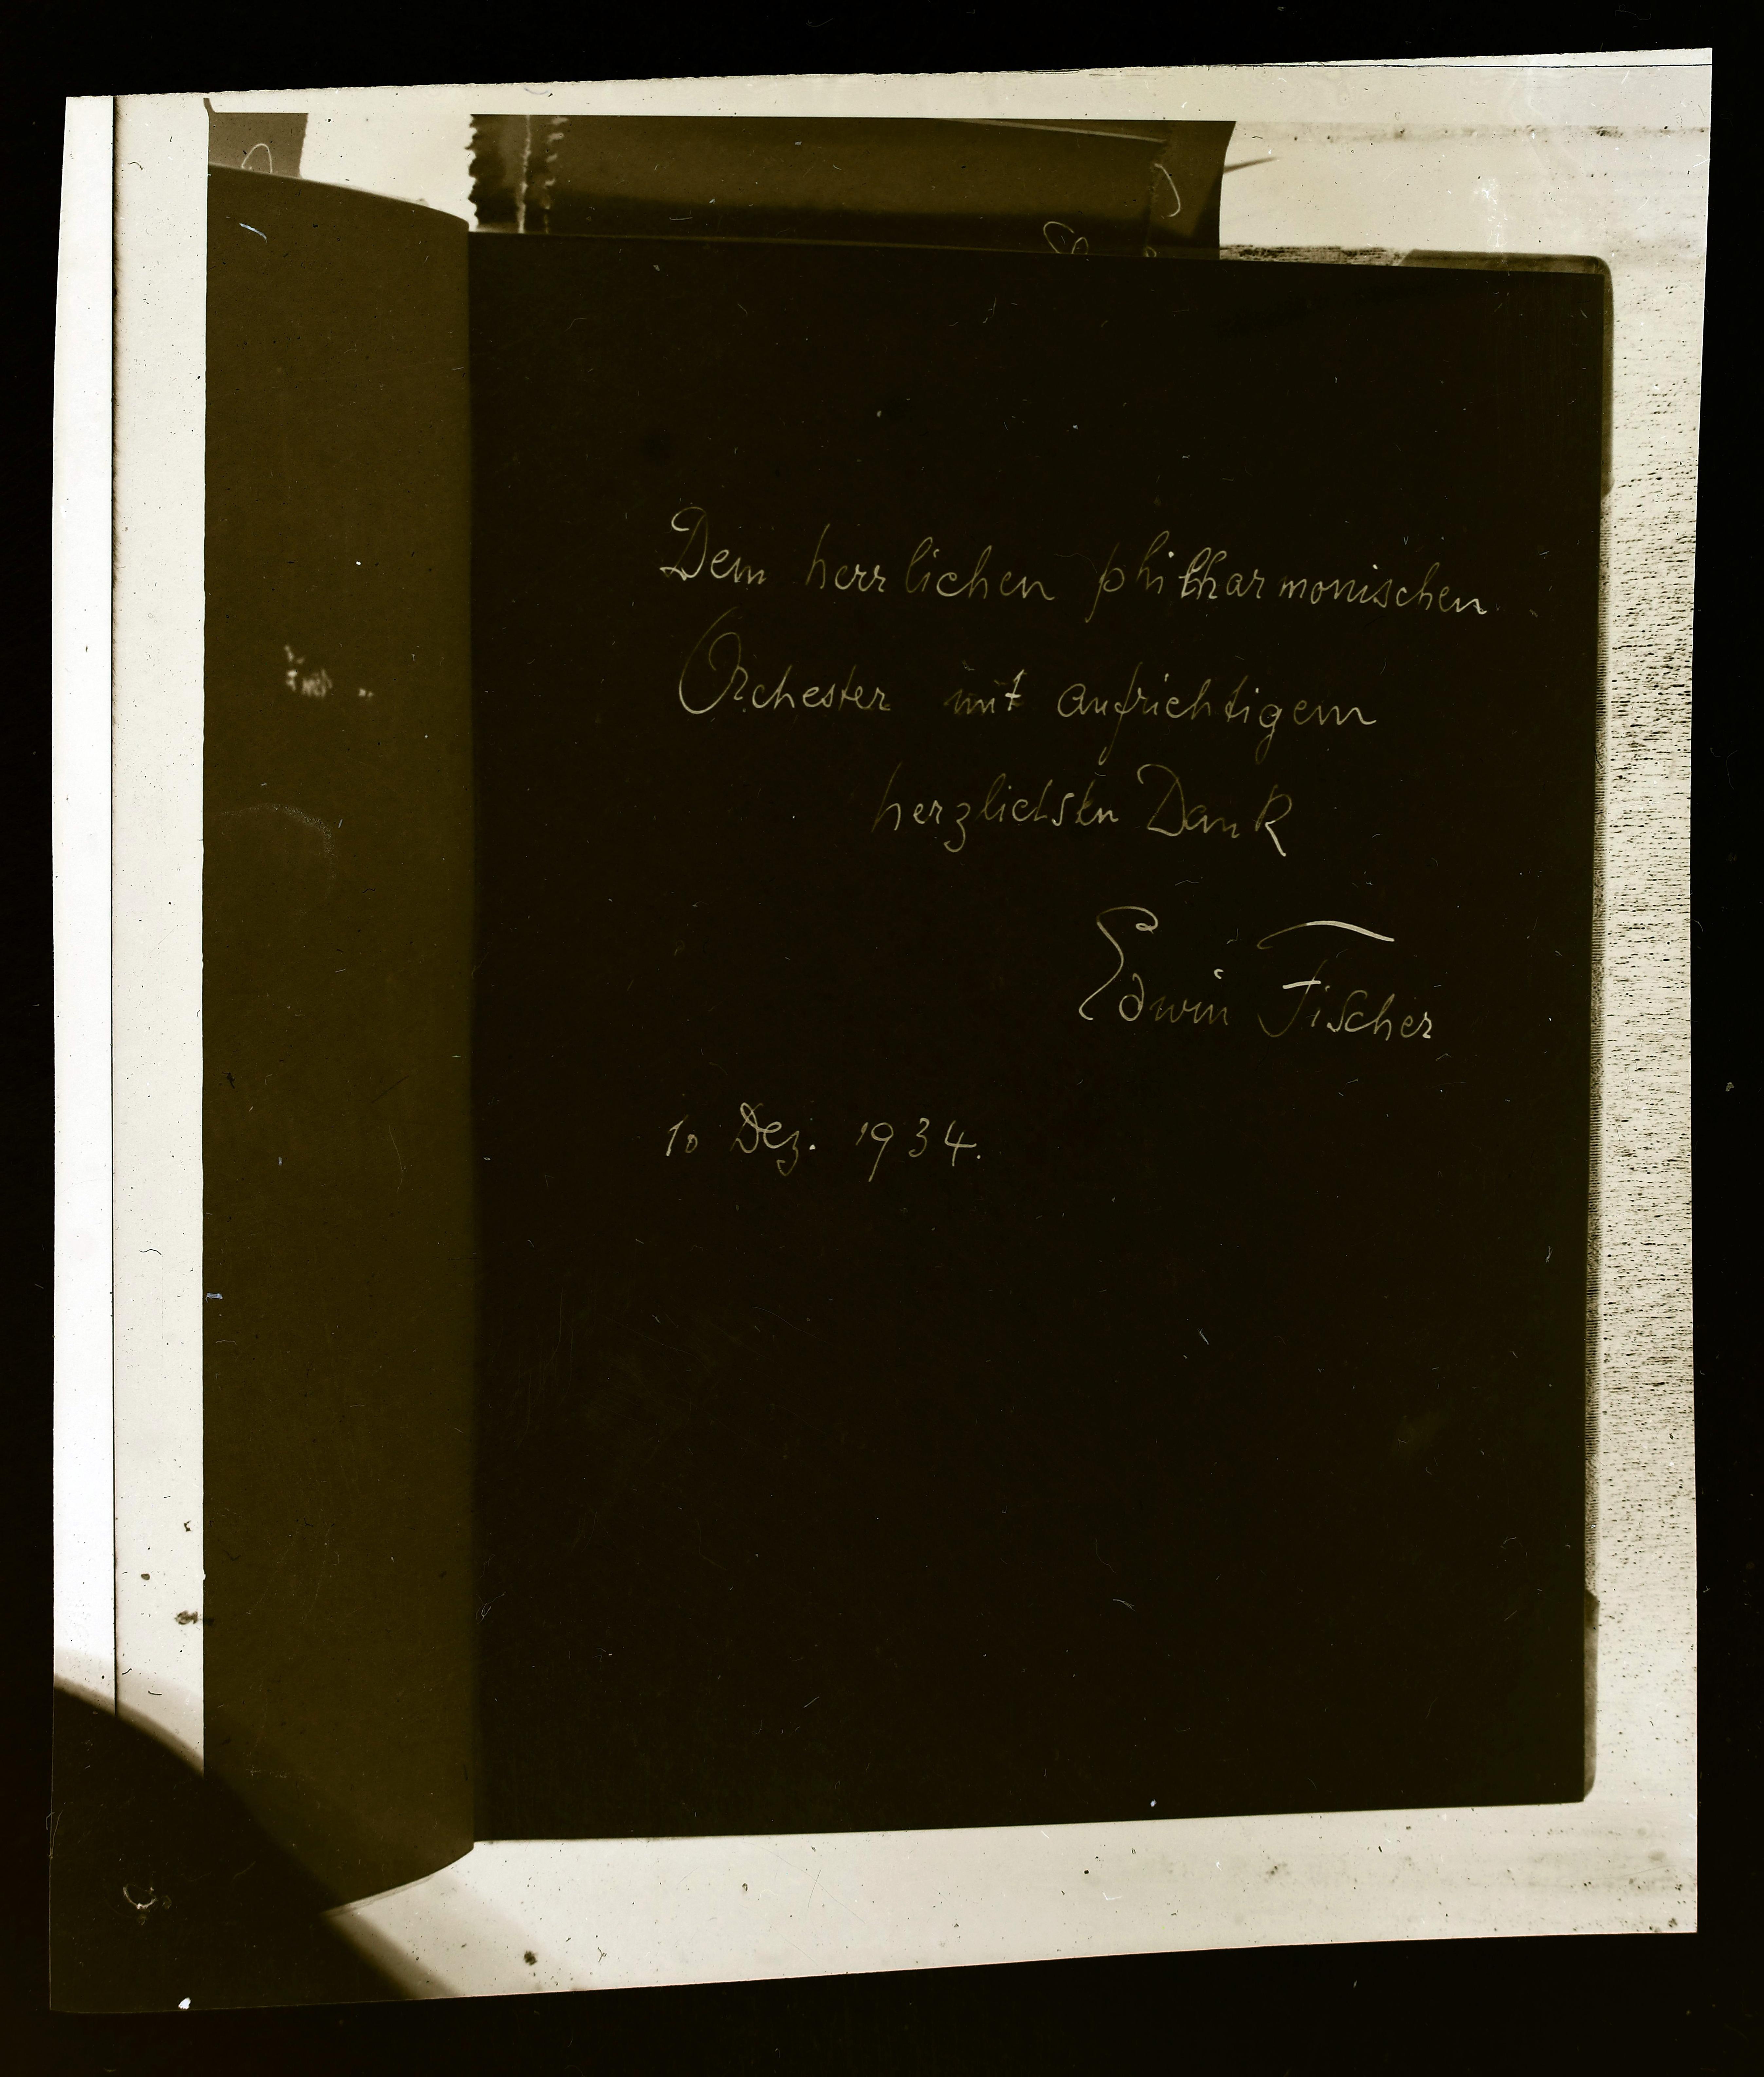 Dem herrlichen philharmonischen
Orchester mit aufrichtigem
herzlichsten Dank
Edwin Fischer
10 Dez. 1934.